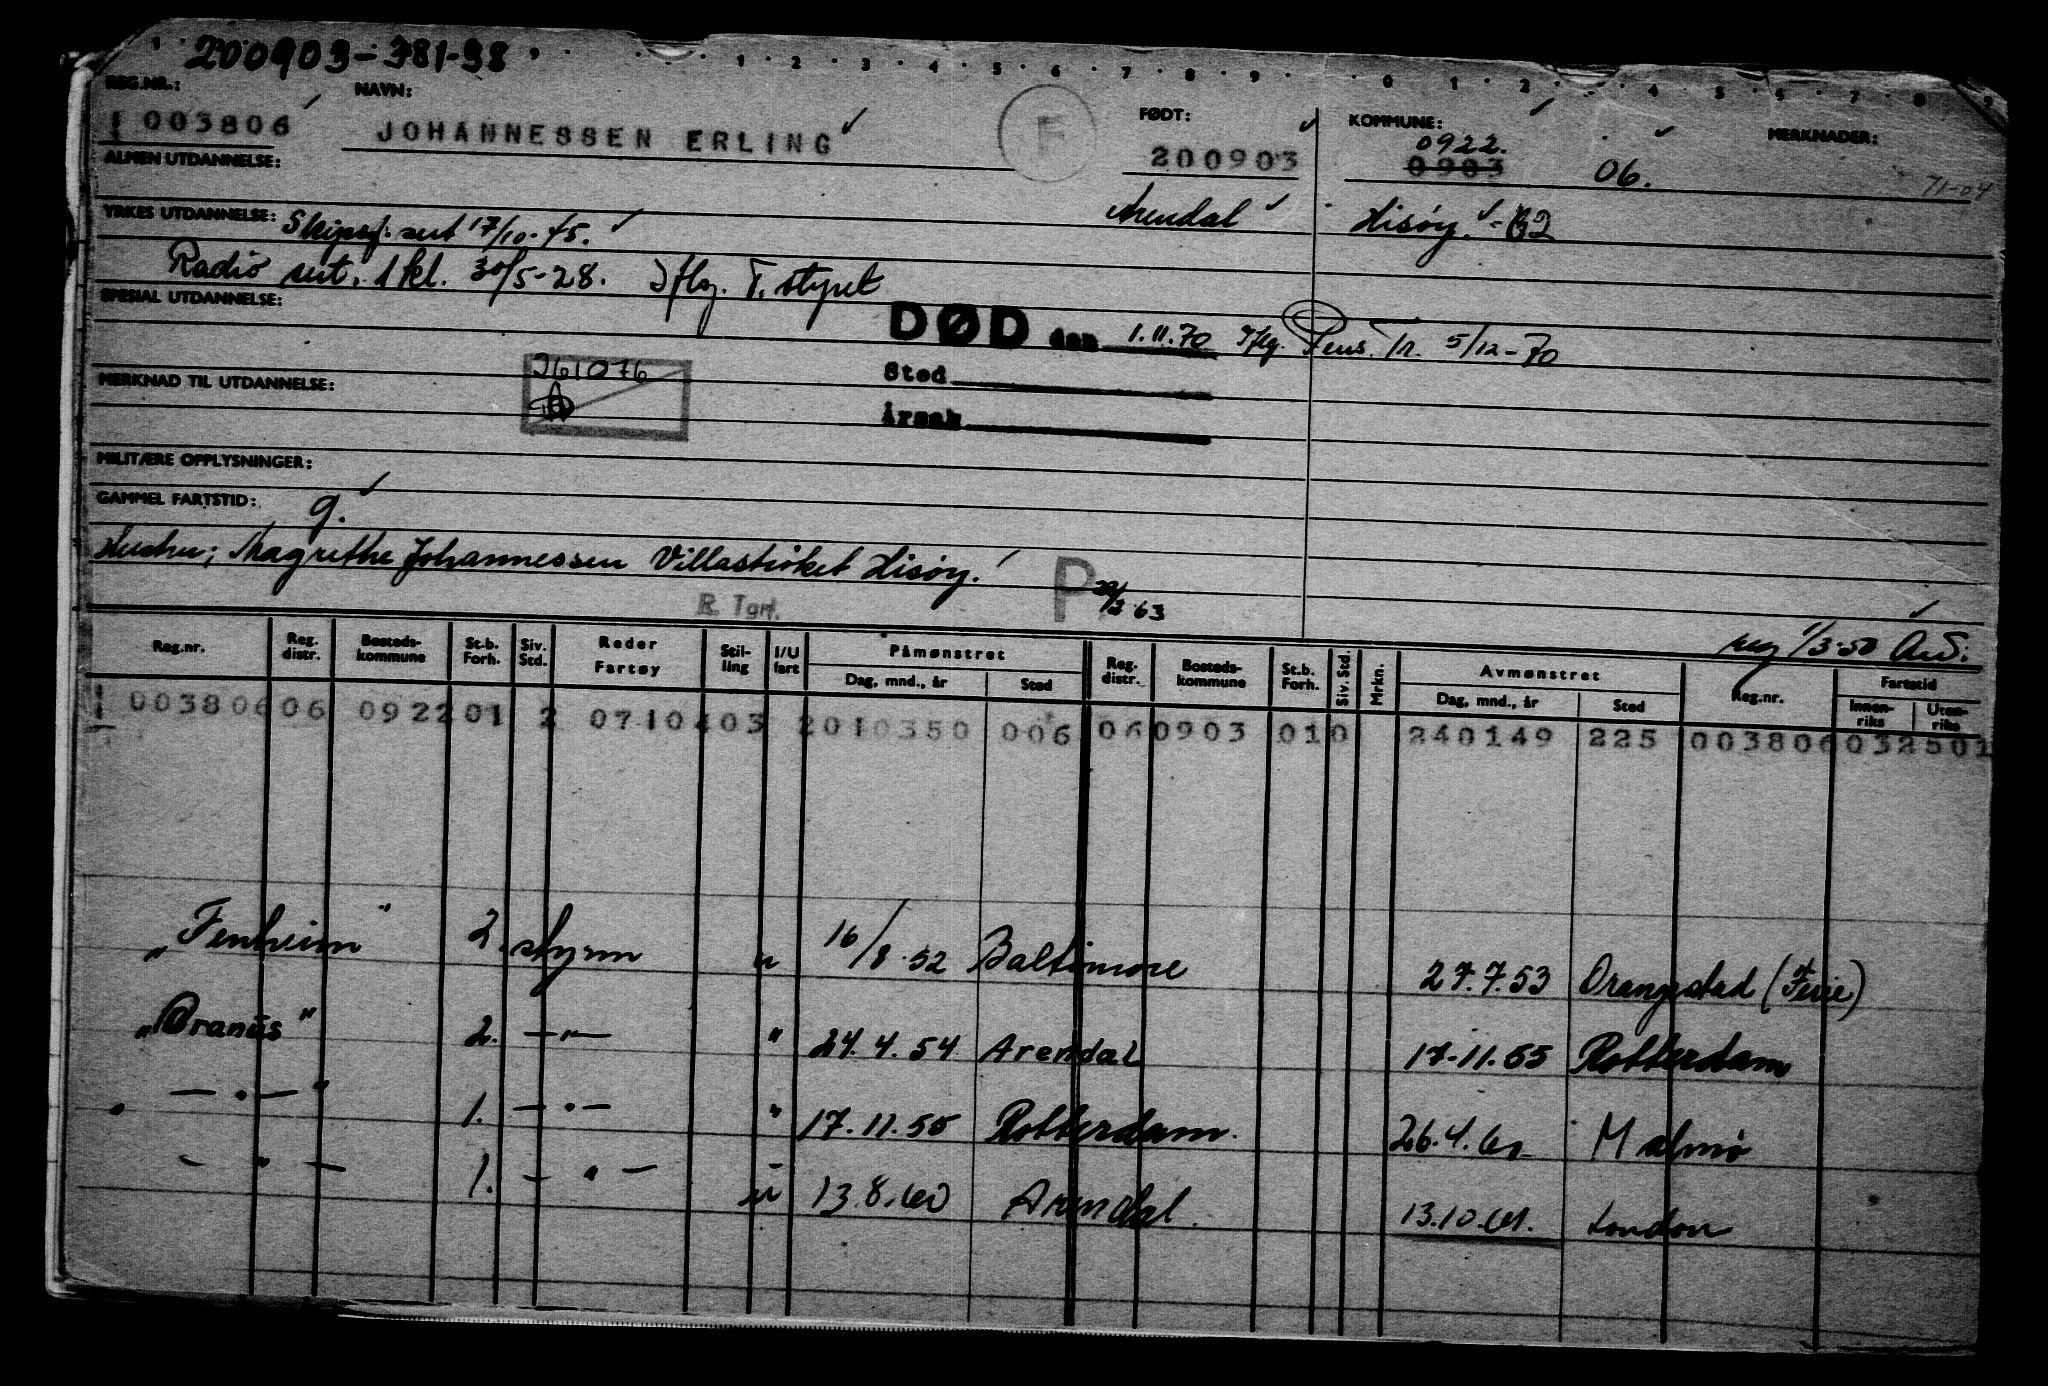 200903-381-38
REG.NR.: NAVN: FØDT: KOMMUNE: MERKNADER:
003806 JOHANNESSEN ERLING F 200903 0922.
0903 06. 71-04
ALMEN UTDANNELSE:
Arendal Hisøy. - B2
YRKES UTDANNELSE: Skipsf. sert 17/10-45.
Radio sert. 1 kl. 30/5-28. Iflg. T. styret
SPESIAL UTDANNELSE:
DØD den 1.11.70 Iflg. Pens. Tr. 5/12-70
Sted
Årsak
261076
MERKNAD TIL UTDANNELSE:
MILITÆRE OPPLYSNINGER:
GAMMEL FARTSTID: g.
Hustru; Magrethe Johannessen Villastrøket Hisøy.
R. Tgrf. P 63
reg 1/3-50
Reg.nr. Reg. distr. Bosteds-kommune St.b. Forh. Siv. Std. Reder Fartøy Stil-ling I/U fart Påmønstret Dag, mnd., år Sted Reg. distr. Bosteds-kommune St.b. Forh. Siv. Std. Mrkn. Avmønstret Dag, mnd., år Sted Reg.nr. Fartstid Innen-riks Uten-riks
003806 06 0922 01 2 0710403 2010350 006 06 0903 01 0 240149 225 003806 032501
„Fenheim" 2. styrm u 16/8.52 Baltimore 27.7.53 Orangestad (Ferie)
„Oranus" 2. —"— " 24.4.54 Arendal 17-11.55 Rotterdam
—"— " 1. —"— " 17.11.55 Rotterdam. 26.4.60 Malmø
—"— 1. —"— u 13.8.60 Arendal. 13.10.61. London